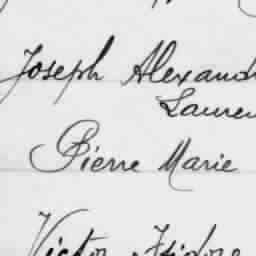 Joseph Alexand
Lauren
Pierre Marie
Victor Isidore